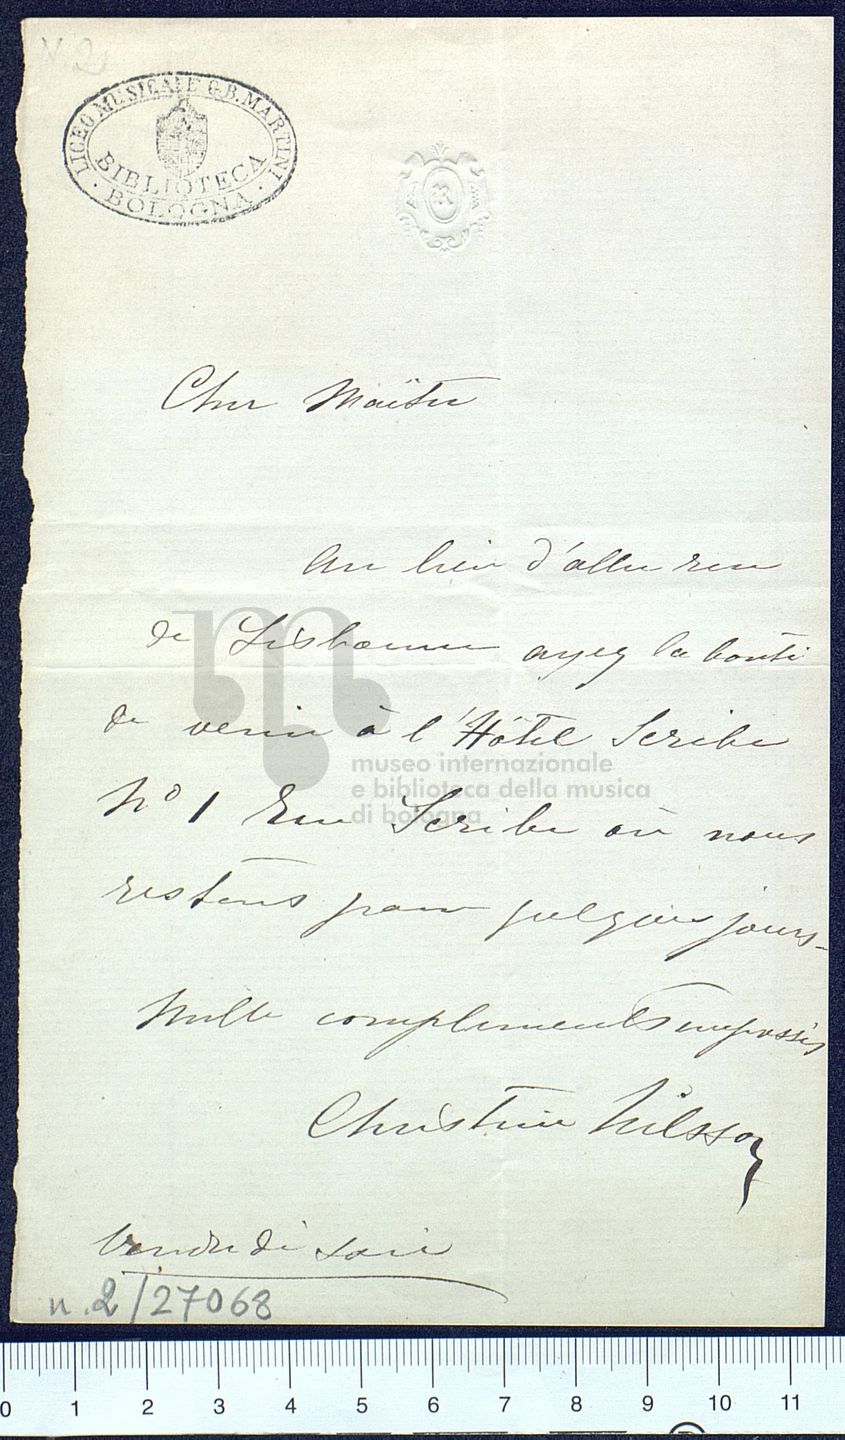 N. 2
LICEO MUSICALE G.B. MARTINI
BIBLIOTECA
BOLOGNA
Cher Maître
Au lieu d'aller rue
de Lisbonne ayez la bonté
de venir à l'Hôtel Scribe
No 1 Rue Scribe où nous
restons pour quelques jours
museo internazionale
e biblioteca della musica
di bologna
Mille compliments
Christine Nilsson
Vendredi soir
n. 2/27068
0 1 2 3 4 5 6 7 8 9 10 11